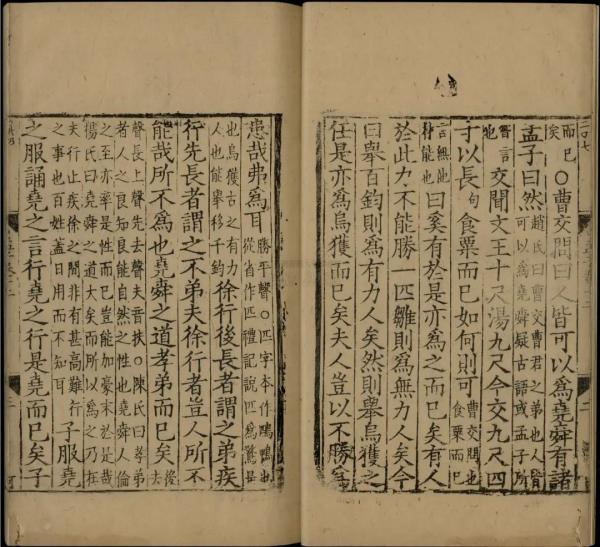 而巳矣○曹交問曰人皆可以為堯舜有諸
孟子曰然趙氏曰曹交曹君之弟也人皆可以為堯舜疑古語或孟子所
嘗言也交聞文王十尺湯九尺今交九尺四
寸以長句食粟而巳如何則可曹交問也食粟而巳
言無他材能也曰奚有於是亦為之而巳矣有人
於此力不能勝一匹雛則為無力人矣今
曰舉百鈞則為有力人矣然則舉烏獲之
任是亦為烏獲而巳矣夫人豈以不勝為
患哉弗為耳勝平聲○匹字本作鴄鴨也從省作匹禮記說匹為鶩是
也烏獲古之有力人也能舉移千鈞徐行後長者謂之弟疾
行先長者謂之不弟夫徐行者豈人所不
能哉所不為也堯舜之道孝弟而巳矣後去
聲長上聲先去聲夫音扶○陳氏曰孝弟者人之良知良能自然之性也堯舜人倫
之至亦率是性而巳豈能加豪末於是哉楊氏曰堯舜之道大矣而所以為之乃在
夫行止疾徐之閒非有甚高難行之事也百姓蓋日用而不知耳子服堯
之服誦堯之言行堯之行是堯而巳矣子